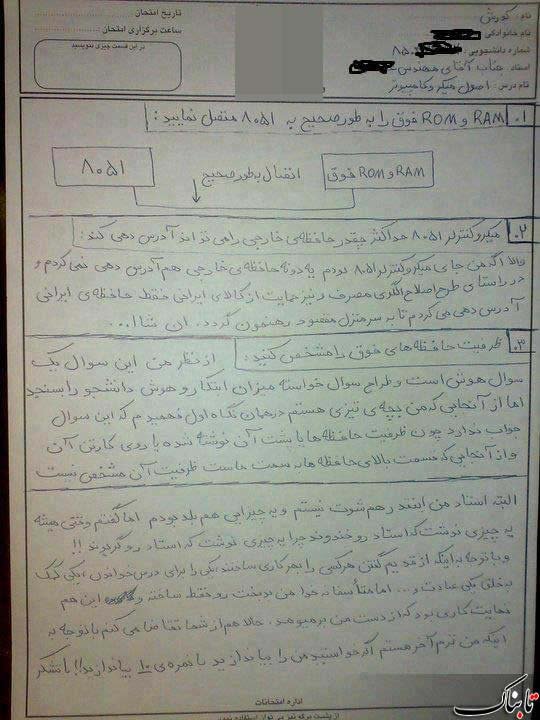 نام: کورش
نام خانوادگی:
شماره دانشجویی: ۸۵۰
استاد: جناب آقای مهندس
نام درس: اصول میکروکامپیوتر
تاریخ امتحان:
ساعت برگزاری امتحان:
در این قسمت چیزی ننویسید
۱. RAM و ROM فوق را به طور صحیح به ۸۰۵۱ متصل نمایید:
۸۰۵۱ اتصال به طور صحیح RAM و ROM فوق
۲. میکروکنترلر ۸۰۵۱ حداکثر چقدر حافظه‌ی خارجی را می تواند آدرس دهی کند:
والا اگه من جای میکروکنترلر ۸۰۵۱ بودم یه دونه حافظه‌ی خارجی هم آدرس دهی نمی کردم و
در راستای طرح اصلاح الگوی مصرف و نیز حمایت از کالای ایرانی فقط حافظه‌ی ایرانی
آدرس دهی می کردم تا به سر منزل مقصود رهنمون گردد. ان شاا...
۳. ظرفیت حافظه های فوق را مشخص کنید: از نظر من این سوال یک
سوال هوش است و طراح سوال خواسته میزان ابتکار و هوش دانشجو را بسنجد
اما از آنجایی که من بچه ی تیزی هستم در همان نگاه اول فهمیدم که این سوال
جواب ندارد چون ظرفیت حافظه ها یا پشت آن نوشته شده یا روی کارتن آن
و از آنجایی که قسمت بالای حافظه ها به سمت ماست ظرفیت آن مشخص نیست
البته استاد من اینقدر هم شوت نیستم و یه چیزایی هم بلد بودم اما گفتم وقتی میشه
یه چیزی نوشت که استاد رو خندوند چرا یه چیزی نوشت که استاد رو گریوند!!
و با توجه به اینکه از قدیم گفتن هر کسی را بهر کاری ساختند، یکی را برای درس خواندن، یکی کمک
به خلق یکی عبادت و... اما متأسفانه خدا من بدبخت رو فقط ساخته و این هم
نهایت کاری بود که از دست من برمیومد، حالا هم از شما تقاضا می کنم با توجه به
اینکه من ترم آخر هستم اگه خواستید من را بیاندازید با نمره ی ۱۰ بیاندازید!! با تشکر
اداره امتحانات
از پشت برگه نیز می توان استفاده نمود
تابناک